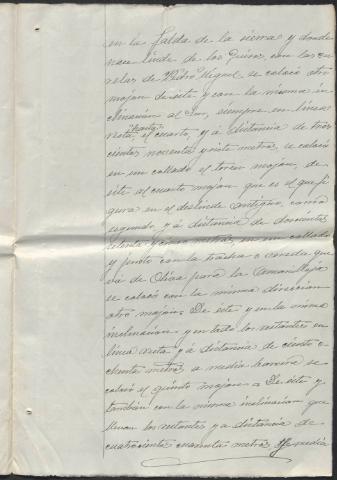 en la falda de la sierra y donde
nace linde de los Quiros con las ca
relas de Pedro Miguel se colocó otro
mojon de este y con la misma in
clinacion al Sur, siempre en linea
recta, el cuarto, y á distancia de tres
cientos noventa y siete metros, se colocó
en un collado el tercer mojon, de
este al cuarto mojon que es el que fi
gura en el deslinde antiguo, como
segundo y á distancia de doscientos
setenta y cinco metros, en un collado
y punto con la trocha o vereda que
vá de Olivas para la
se colocó con la misma direccion
otro mojon. De este y en la misma
inclinacion y en todo los restantes en
linea recta y á distancia de ciento o
chenta metros, a media barrera se
colocó el quinto mojon. De este y
tambien con la misma inclinacion que
llevan los restantes y a distancia de
cuatrocientos cuarenta metros y media